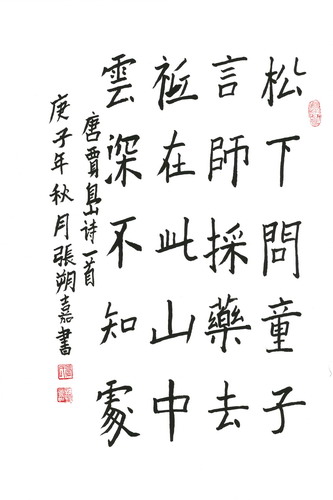 松下問童子
言師採藥去
祗在此山中
雲深不知處
唐賈島诗一首
庚子年秋月張朔嘉書